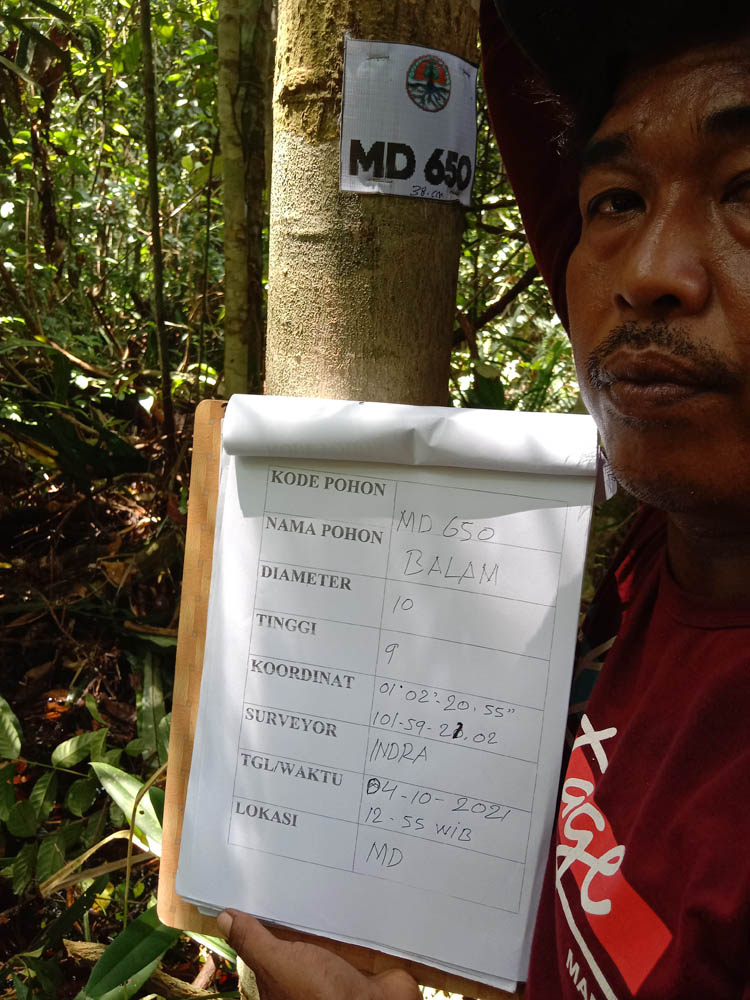 MD 650
38 cm
KODE POHON MD 650
NAMA POHON BALAM
DIAMETER 10
TINGGI 9
KOORDINAT 01°02'-20,55"
101-59-21,02
SURVEYOR INDRA
TGL/WAKTU 04-10-2021
12-55 WIB
LOKASI MD